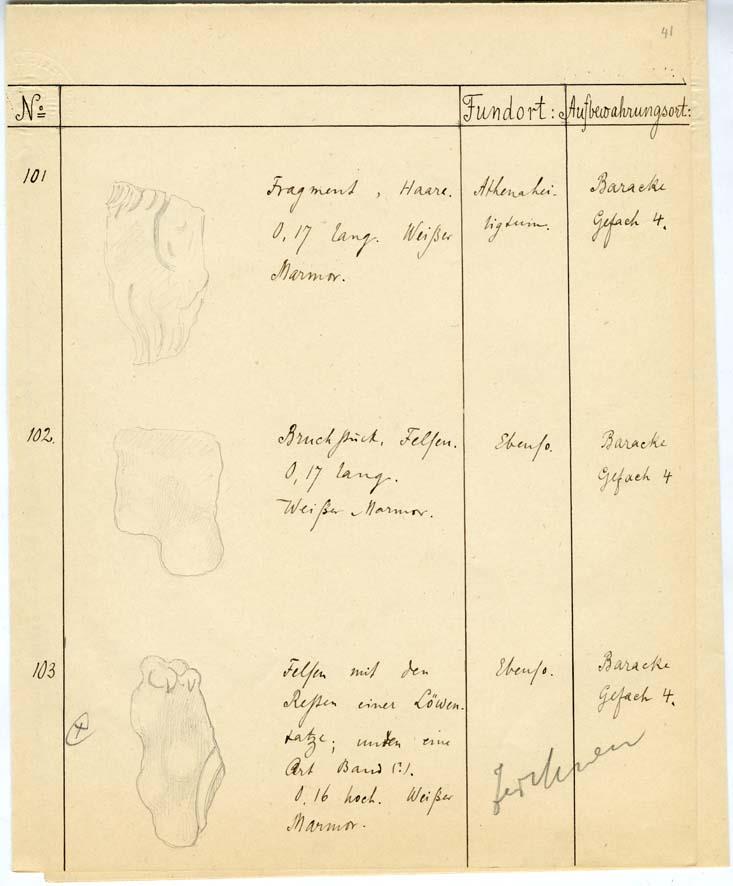 41
No: Fundort: Aufbewahrungsort:
101
Fragment, Haare.
0,17 lang. Weißer
Marmor.
Athenahei-
ligtum.
Baracke
Gefach 4.
102.
Bruchstück, Felsen.
0,17 lang.
Weißer Marmor.
Ebenso.
Baracke
Gefach 4
103
Felsen mit den
Resten einer Löwen-
tatze; unten eine
Art Band (?).
0,16 hoch. Weißer
Marmor.
Ebenso.
Baracke
Gefach 4.
Zeichnen